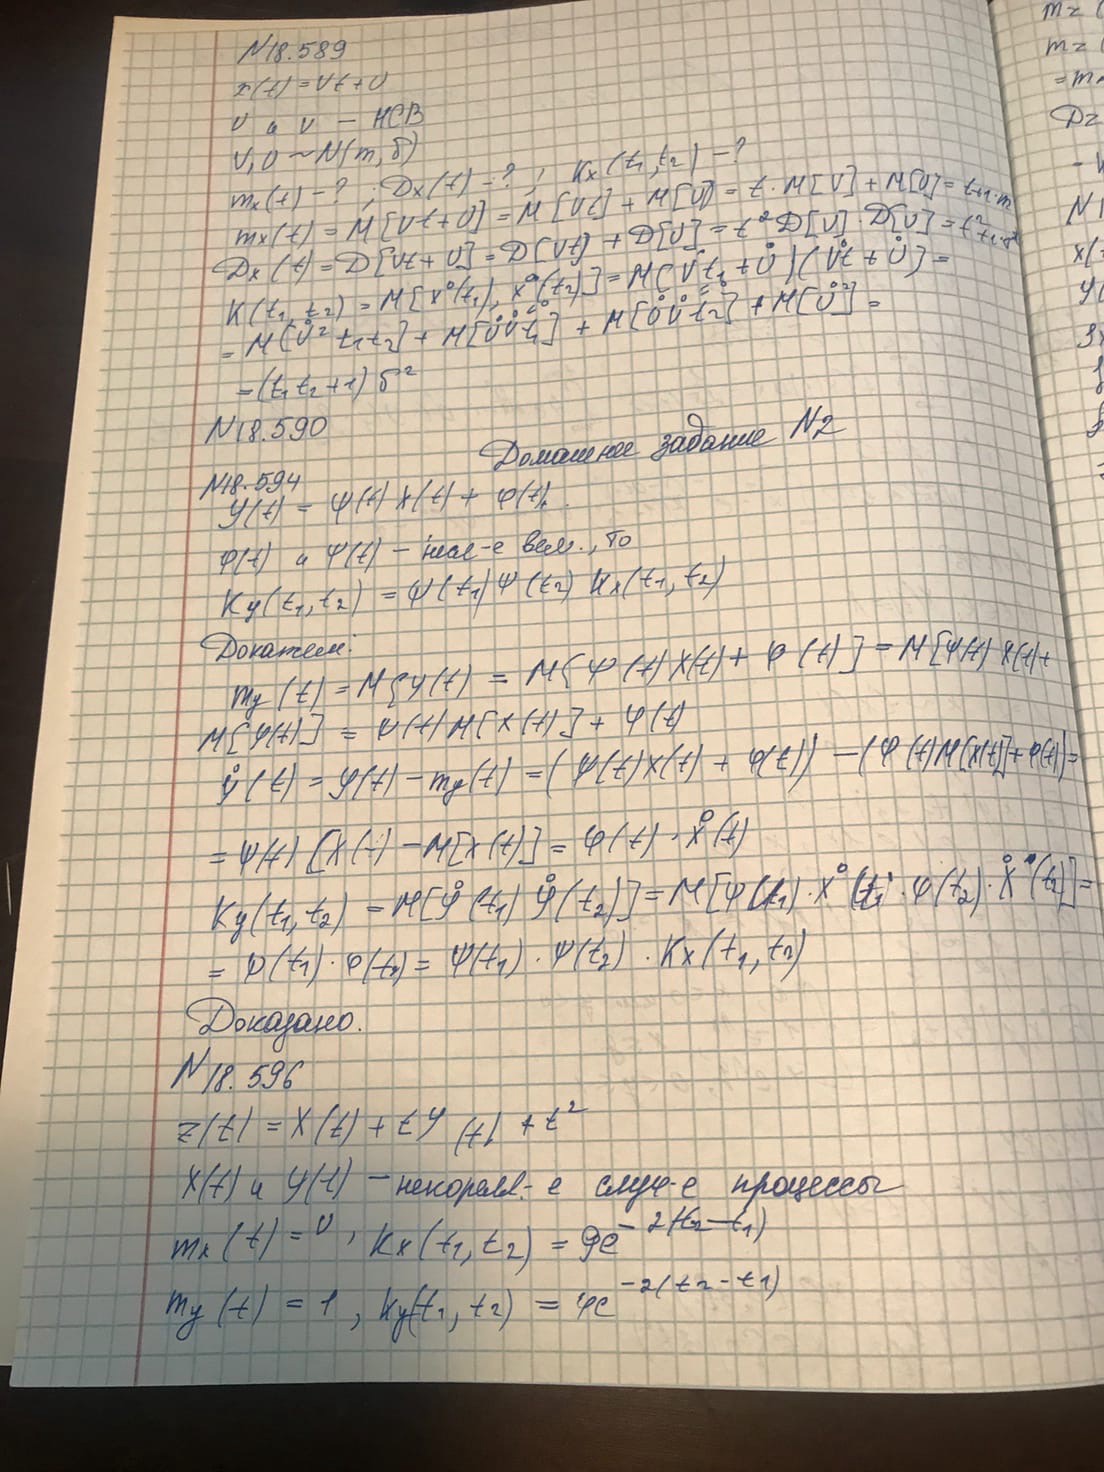 N18.589
x(t) = Vt + U
U и V – НСВ
V, U ~ N(m, δ)
mx(t) – ? ; Dx(t) – ? ; Kx(t1, t2) – ?
mx(t) = M[Vt + U] = M[Vt] + M[U] = t · M[V] + M[U] =
Dx(t) = D[Vt + U] = D[Vt] + D[U] = t² D[V] · D[U] =
K(t1, t2) = M[X°(t1), X°(t2)] = M(V̊t1 + Ů)(V̊t + Ů] =
= M[Ů² t1t2] + M[ŮŮt1] + M[ŮŮt2] + M[Ů²] =
= (t1 t2 + 1) δ²
N18.590
Домашнее задание N2
N18.594
Y(t) = ψ(t) X(t) + φ(t).
φ(t) и Ψ(t) – вел., то
Ky(t1, t2) = Ψ(t1) Ψ(t2) Kx(t1, t2)
Докажем:
my(t) = M{Y(t) = M{Ψ(t) X(t) + φ(t)] = M[Ψ(t) X(t) +
M[φ(t)] = Ψ(t) M[X(t)] + φ(t)
ẙ(t) = Y(t) – my(t) = (Ψ(t) X(t) + φ(t)) – (Ψ(t) M[X(t)] + φ(t)) =
= Ψ(t) [X(t) – M[X(t)] = φ(t) · X̊(t)
Ky(t1, t2) = M[ẙ(t1) ẙ(t2)] = M[Ψ(t1) · X°(t1) · φ(t2) · X̊(t2)] =
= φ(t1) · φ(t2) = Ψ(t1) · Ψ(t2) · Kx(t1, t2)
Доказано.
N18.596
z(t) = X(t) + tY(t) + t²
X(t) и Y(t) – некорелл-е случ-е процессы
mx(t) = 0, Kx(t1, t2) = 9e^–2(t2–t1)
my(t) = 1, Ky(t1, t2) = 4e^–2(t2–t1)
mz (
mz (
= m
Dz
N1
x(
y(